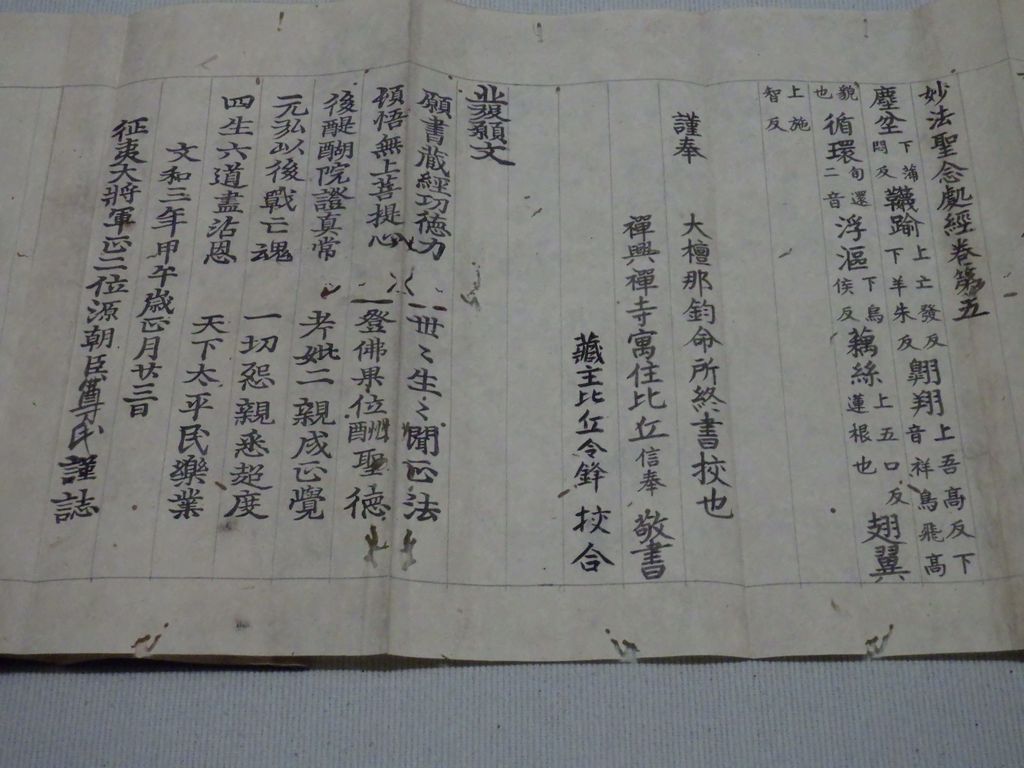 妙法聖念處經卷第五
塵坌下蒲悶反 韈踰上亡發反下羊朱反 翺翔上吾高反下音祥鳥飛高
也皃 循環旬還二音 浮漚下烏侯反 藕絲上五口反蓮根也 翅翼
上施智反
謹奉 大檀那鈞命所終書挍也
禪興禪寺寓住比丘信奉 敬書
藏主比丘令鋒 挍合
發願文
願書藏經功德力 世〻生〻聞正法
頓悟無上菩提心 一登佛果位酬聖德
後醍醐院證真常 考妣二親成正覺
元弘以後戰亡魂 一切怨親悉超度
四生六道盡沾恩 天下太平民樂業
文和三年甲午歲正月廿三日
征夷大將軍正二位源朝臣尊氏謹誌